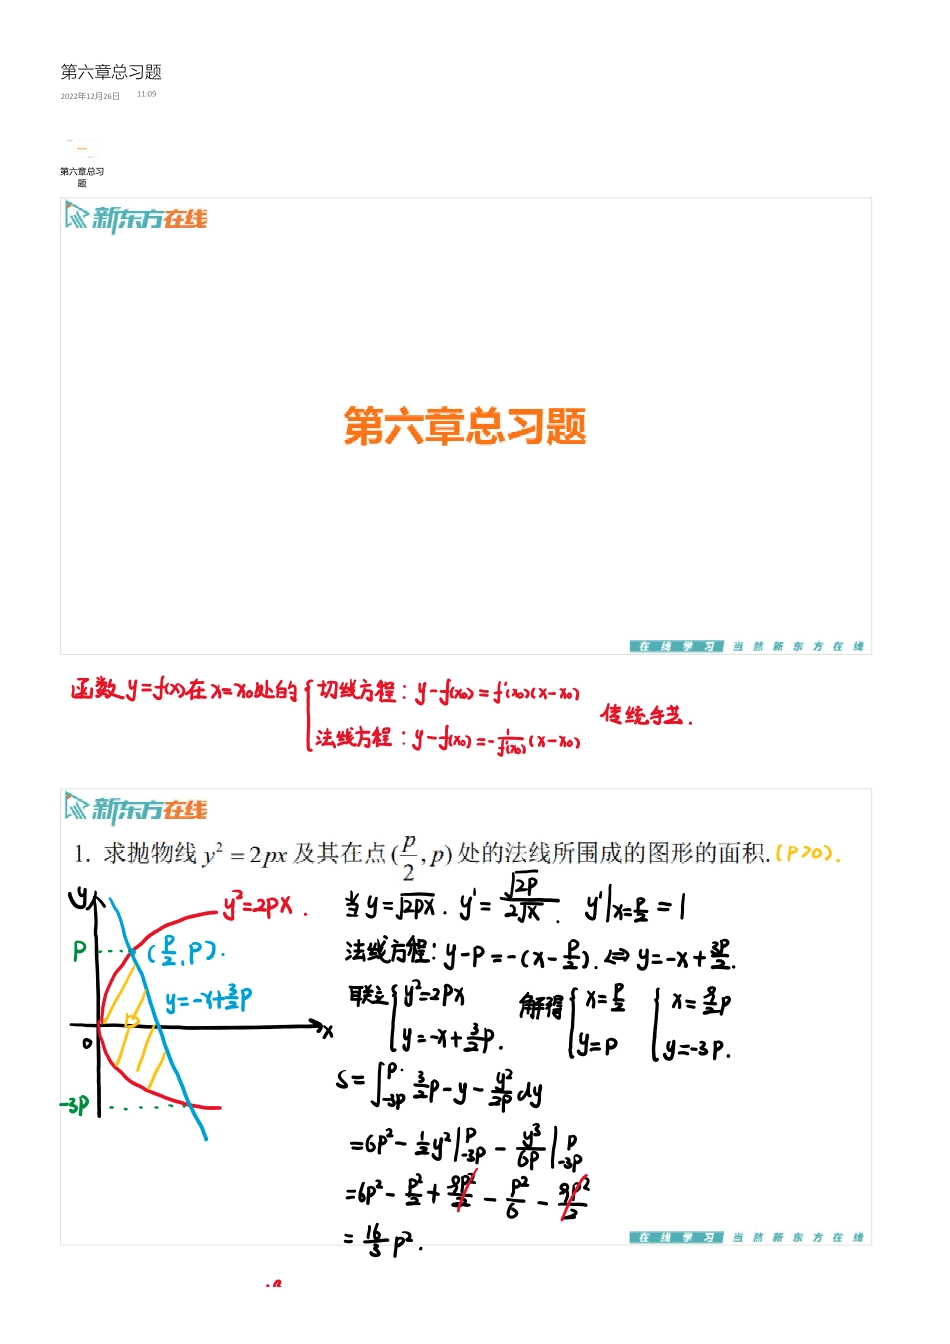 第六章总习题
2022年12月26日 11:09
第六章总习
题
新东方在线
第六章总习题
在线学习 当然新东方在线
函数 y=f(x) 在 x=x₀处的 { 切线方程: y-f(x₀)=f'(x₀)(x-x₀)
法线方程: y-f(x₀)=-1/f'(x₀)(x-x₀)
传统手艺.
新东方在线
1. 求抛物线 y²=2px 及其在点(p/2, p)处的法线所围成的图形的面积. (P>0).
y
y²=2PX.
P
(P/2, P).
y=-x+3/2P
D
0
x
-3P
当 y=√2PX. y'=√2P/2√X. y'|x=P/2 =1
法线方程: y-P=-(x-P/2). ⇔ y=-x+3P/2.
联立 { y²=2PX
y=-x+3/2P.
解得 { x=P/2 { x=9/2P
y=P y=-3P.
S=∫_{-3P}^{P} 3/2P-y-y²/2P dy
=6P²-1/2y²|_{-3P}^{P} - y³/6P|_{-3P}^{P}
=6P²-P²/2+9P²/2-P²/6-9P²/2
=16/3P².
在线学习 当然新东方在线